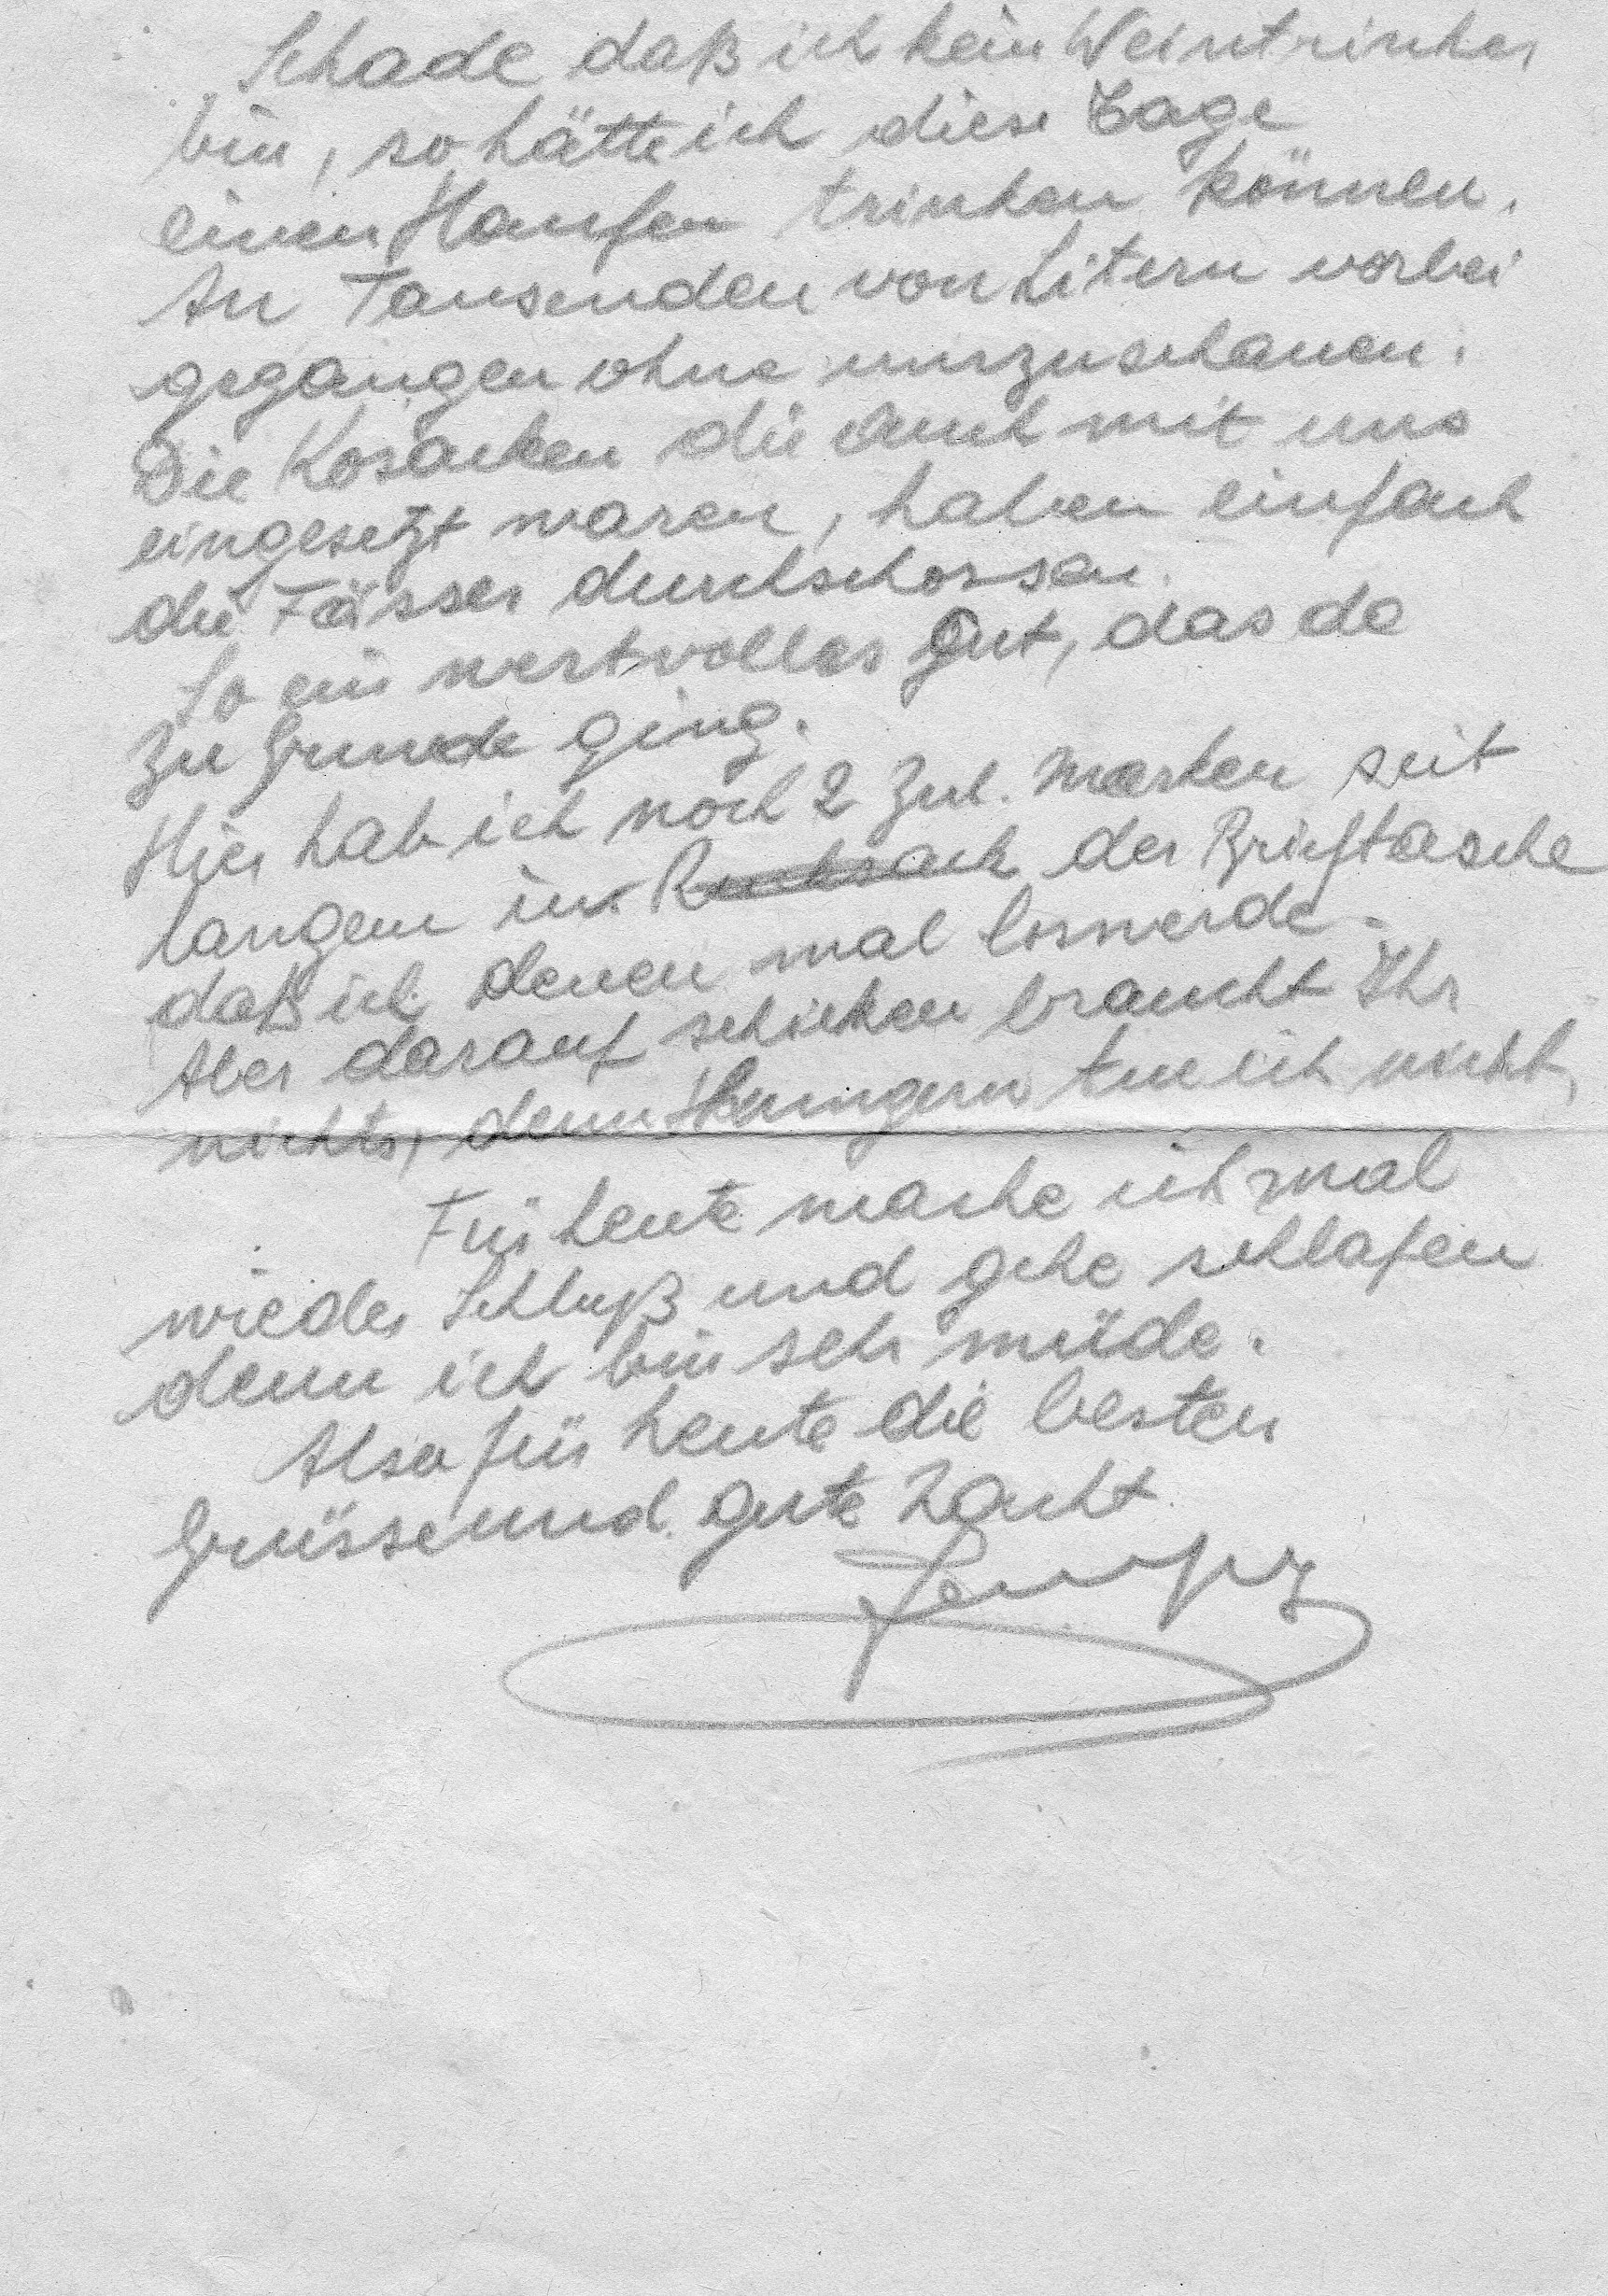 Schade daß ich kein Weintrinker
bin, so hätte ich diese Tage
einen Haufen trinken können.
An Tausenden von Litern vorbei
gegangen ohne umzuschauen.
Die Kosacken die auch mit uns
eingesetzt waren, haben einfach
die Fässer durchschossen.
So ein wertvolles Gut, das da
zu Grunde ging.
Hier hab ich noch 2 Zul. Marken seit
langem in Rucksack der Brieftasche
daß ich denen mal loswerde.
Aber darauf schicken braucht Ihr
nichts, denn Hungern tue ich nicht,
Für heute mache ich mal
wieder Schluß und gehe schlafen
denn ich bin sehr müde.
Also für heute die besten
Grüsse und gute Nacht